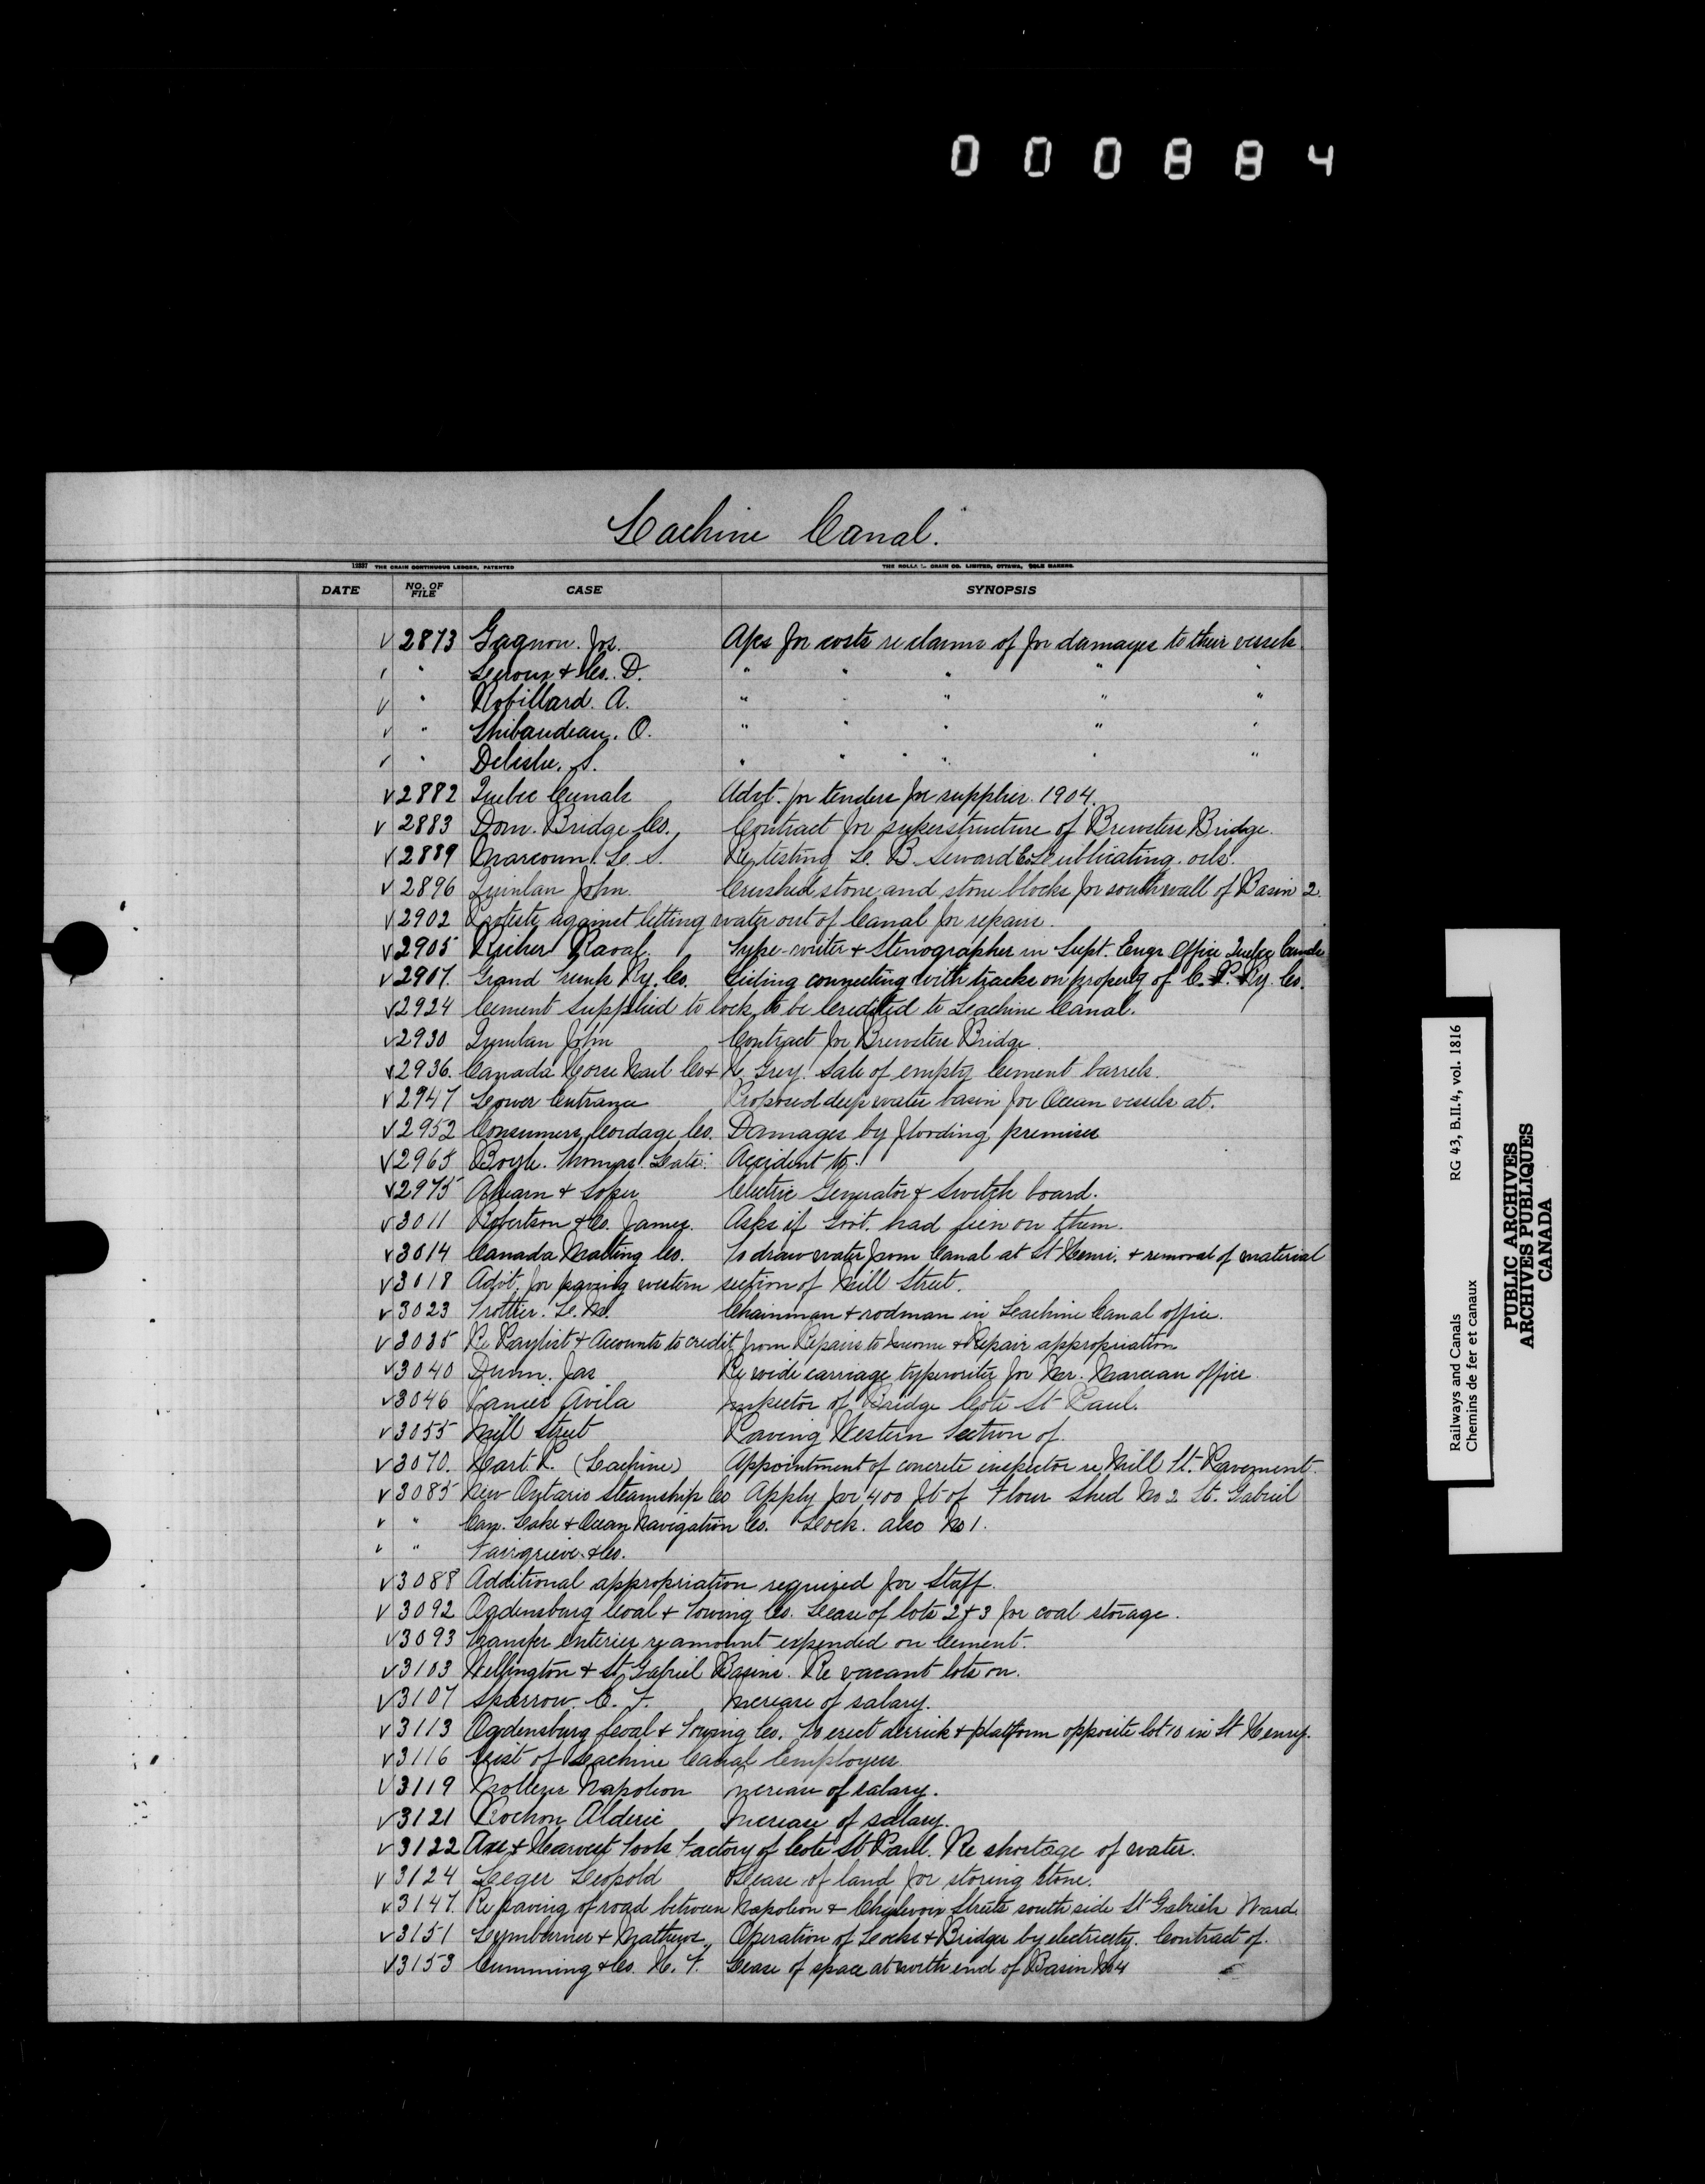 000884
Lachine Canal.
12337 THE CRAIN CONTINUOUS LEDGER, PATENTED THE ROLLA L. CRAIN CO. LIMITED, OTTAWA, SOLE MAKERS.
DATE NO. OF FILE CASE SYNOPSIS
✓ 2873 Gagnon. Jos. Aps for costs re claims of for damages to their vessels.
✓ " Leroux & Co. D. " " " " "
✓ " Robillard. A. " " " " "
✓ " Thibaudeau. O. " " " " "
✓ " Delisle. S. " " " " "
✓ 2882 Quebec Canals Advt. for tenders for supplies. 1904.
✓ 2883 Dom. Bridge Co. Contract for superstructure of Brewsters Bridge.
✓ 2889 Marcoun. L. S. Re testing L. B. Seward & Co Lublicating oils.
✓ 2896 Quinlan John. Crushed stone and stone blocks for south wall of Basin 2.
✓ 2902 Protests against letting water out of Canal for repairs.
✓ 2905 Richer Raoal. Type-writer & Stenographer in Supt. Engr Office Quebec Canals
✓ 2907. Grand Trunk Ry. Co. Siding connecting with tracks on property of C. P. Ry. Co.
✓ 2924 Cement supplied to lock to be Credited to Lachine Canal.
✓ 2930 Quinlan John Contract for Brewsters Bridge.
✓ 2936. Canada Horse Nail Co & H. Grey. Sale of empty Cement barrels.
✓ 2947 Lower Entrance Proposed deep water basin for Ocean vessels at.
✓ 2952 Consumers Cordage Co. Damages by flooding premises
✓ 2965 Boyle. Thomas. Late. Accident to.
✓ 2975 Ahearn & Soper Electric Generator & Switch board.
✓ 3011 Robertson & Co. James. Asks if Govt. had lien on them.
✓ 3014 Canada Malting Co. To draw water from Canal at St Henri. & removal of material
✓ 3018 Advt. for paving western section of Mill Street.
✓ 3023 Trottier. L. M. Chainman & rodman in Lachine Canal office.
✓ 3035 Re Paylist & Accounts to credit from Repairs to Income & Repair appropriation
✓ 3040 Dunn. Jas Re wide carriage typewriter for Mr. Marceau office.
✓ 3046 Vanier Avila Inspector of Bridge Cote St Paul.
✓ 3055 Mill Street Paving Western Section of
✓ 3070. Hart. P. (Lachine) Appointment of concrete inspector re Mill St. Pavement.
✓ 3085 New Ontario Steamship Co Apply for 400 ft of Flour Shed No 2 St. Gabriel
✓ " Can. Lake & Ocean Navigation Co. Lock. also No 1.
✓ " Fairgrieve & Co.
✓ 3088 Additional appropriation required for Staff.
✓ 3092 Ogdensburg Coal & Towing Co. Lease of lots 2 & 3 for coal storage.
✓ 3093 Transfer enteries re amount expended on Cement.
✓ 3103 Wellington & St. Gabriel Basins. Re vacant lots on.
✓ 3107 Sparrow. C. F. Increase of salary.
✓ 3113 Ogdensburg Coal & Towing Co. To erect derrick & platform opposite lot 10 in St Henry.
✓ 3116 List of Lachine Canal Employees
✓ 3119 Molleur Napoleon Increase of salary.
✓ 3121 Rochon Alderic Increase of salary.
✓ 3122 Axe & Harvest Tools Factory of Cote St Paul. Re shortage of water.
✓ 3124 Leger Leopold Lease of land for storing stone.
✓ 3147. Re paving of road between Napoleon & Charlevoix Streets south side St Gabriels Ward
✓ 3151 Lymburner & Mathews, Operation of Locks & Bridges by electricity. Contract of.
✓ 3153 Cumming & Co. H. F. Lease of space at north end of Basin No 4
Railways and Canals RG 43, B.II.4, vol. 1816
Chemins de fer et canaux
PUBLIC ARCHIVES
ARCHIVES PUBLIQUES
CANADA